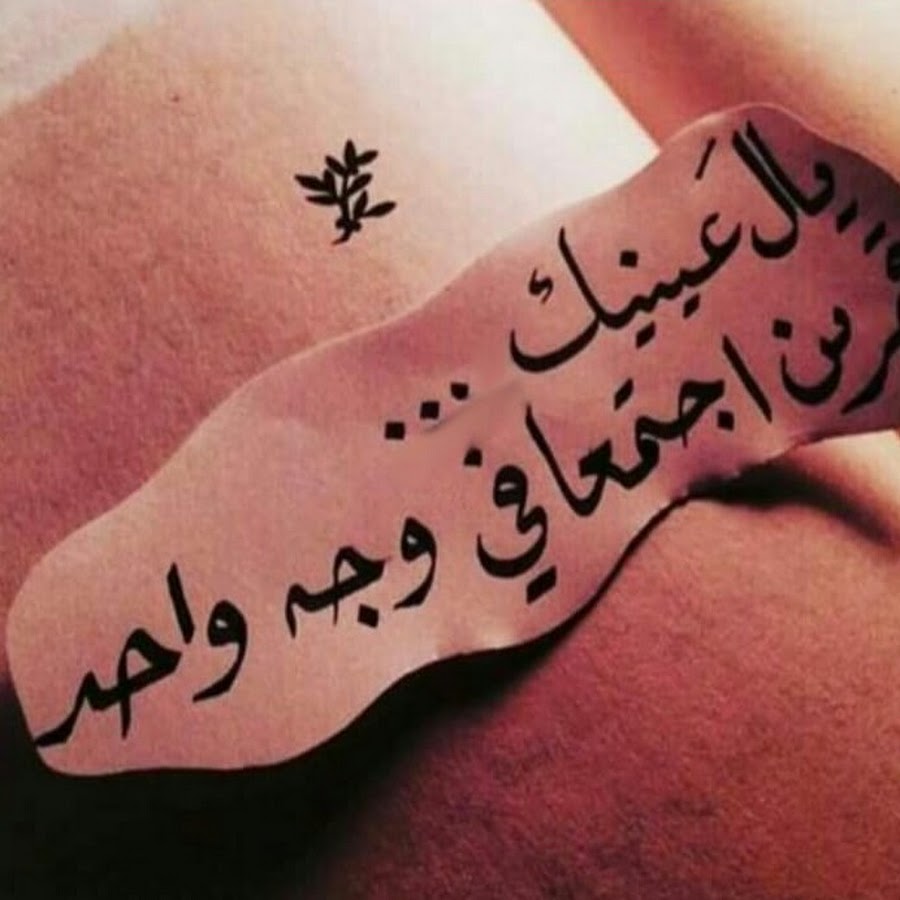 ..يال عَينيك ...
قمرين اجتمَعا في وجه واحد